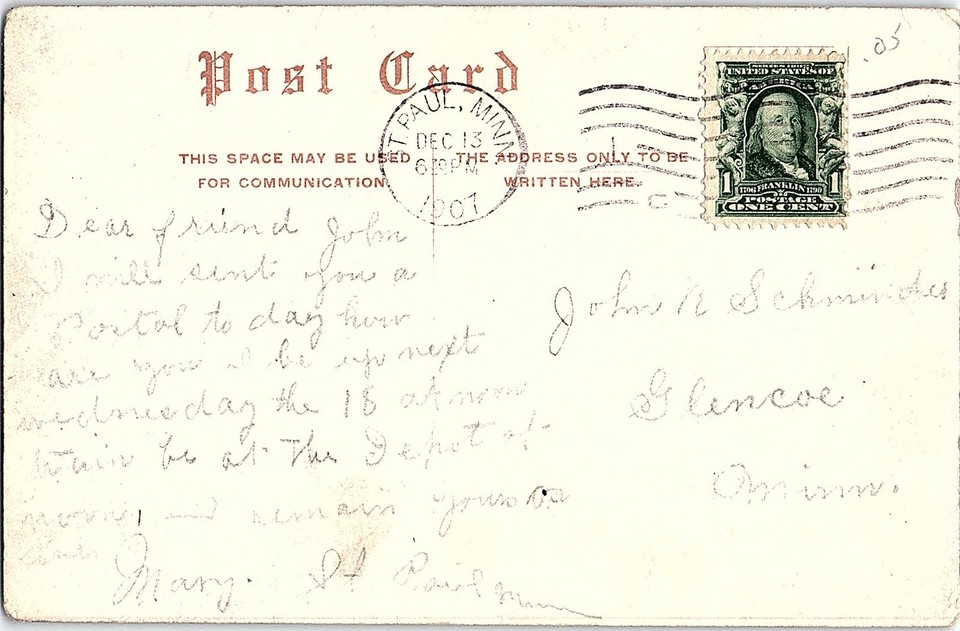 Post Card
.05
ST. PAUL, MINN
DEC 13
PM
1907
UNITED STATES OF
AMERICA
1 1
1706 FRANKLIN 1790
POSTAGE
ONE CENT
THIS SPACE MAY BE USED
FOR COMMUNICATION.
THE ADDRESS ONLY TO BE
WRITTEN HERE.
Dear friend John
I will sent you a
Postal to day how
are you I be up next
wednesday the 18 at noon
train be at the Depot at
and remain yours
Mary. St Paul Minn
John R
Glencoe
Minn.